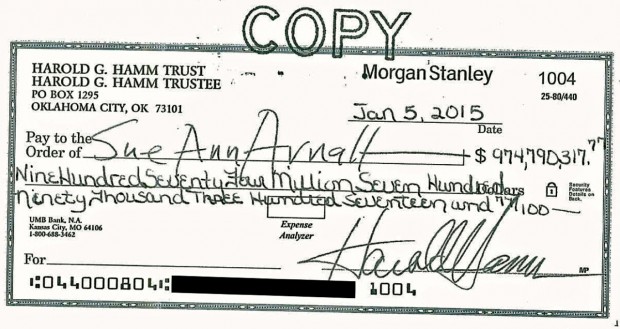 COPY
HAROLD G. HAMM TRUST
HAROLD G. HAMM TRUSTEE
PO BOX 1295
OKLAHOMA CITY, OK 73101
Morgan Stanley
1004
25-80/440
Jan 5, 2015
Date
Pay to the
Order of Sue Ann Arnall $ 974,790,317.77
Nine Hundred Seventy Four Myllion Seven Hundred Dollars
Ninety Thousand Three Hundred Seventeen and 77/100
Security
Features
Details on
Back.
UMB Bank, N.A.
Kansas City, MO 64106
1-800-688-3462
Expense
Analyzer
For
Harold Hamm
MP
⑆044000804⑆ 1004